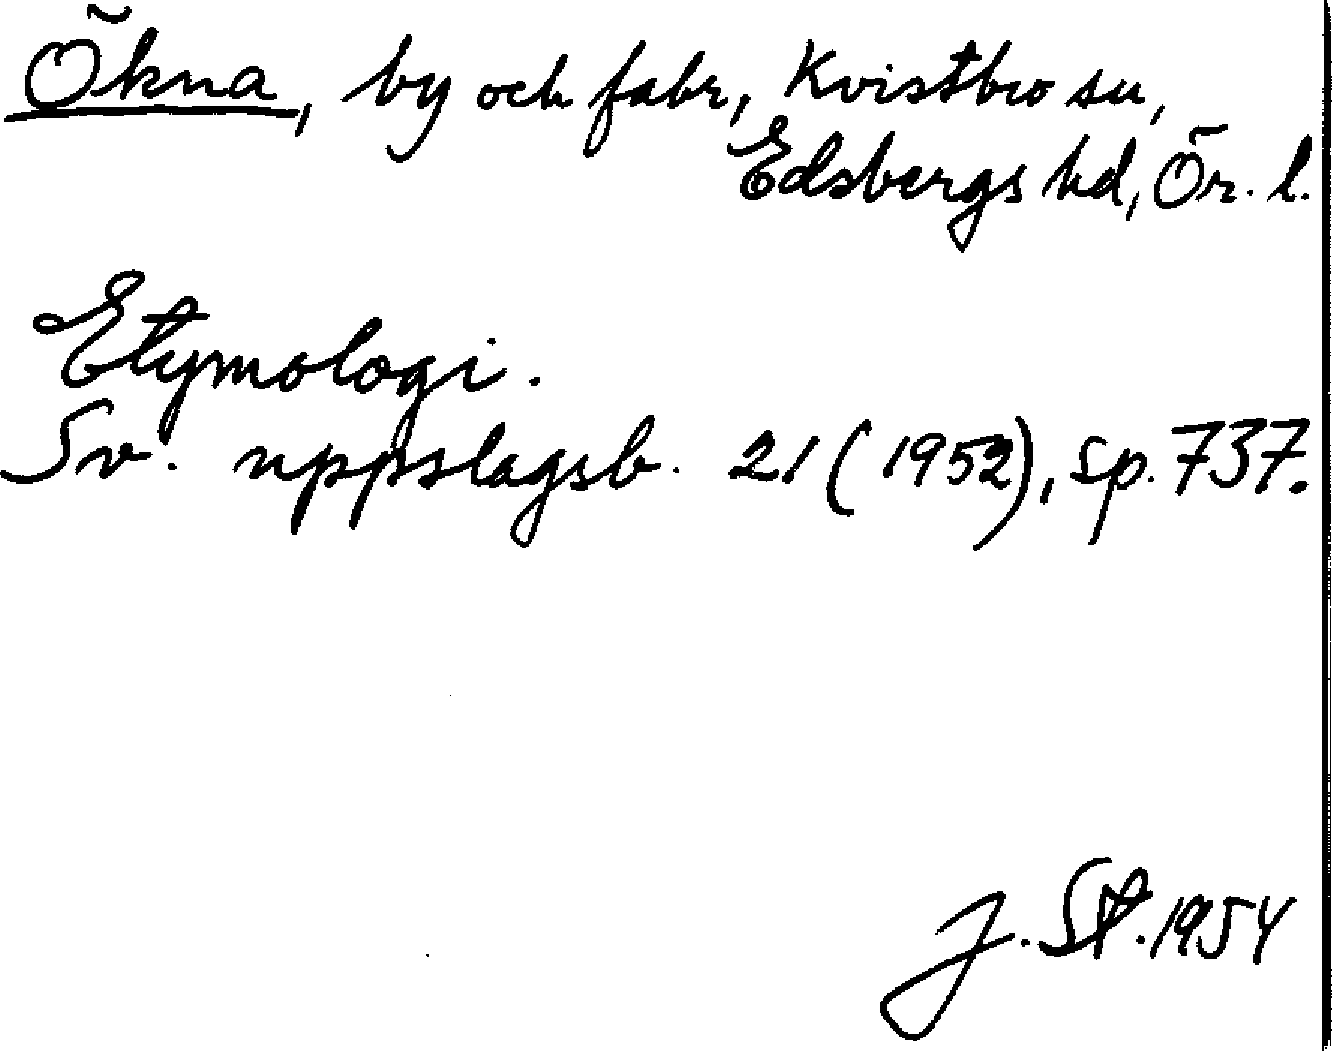 Ökna, by och fabr, Kvistbro sn,
Edsbergs hd, Ör. l.
Etymologi.
Sv. uppslagsb. 21 (1952), sp. 737.
J. St. 1954